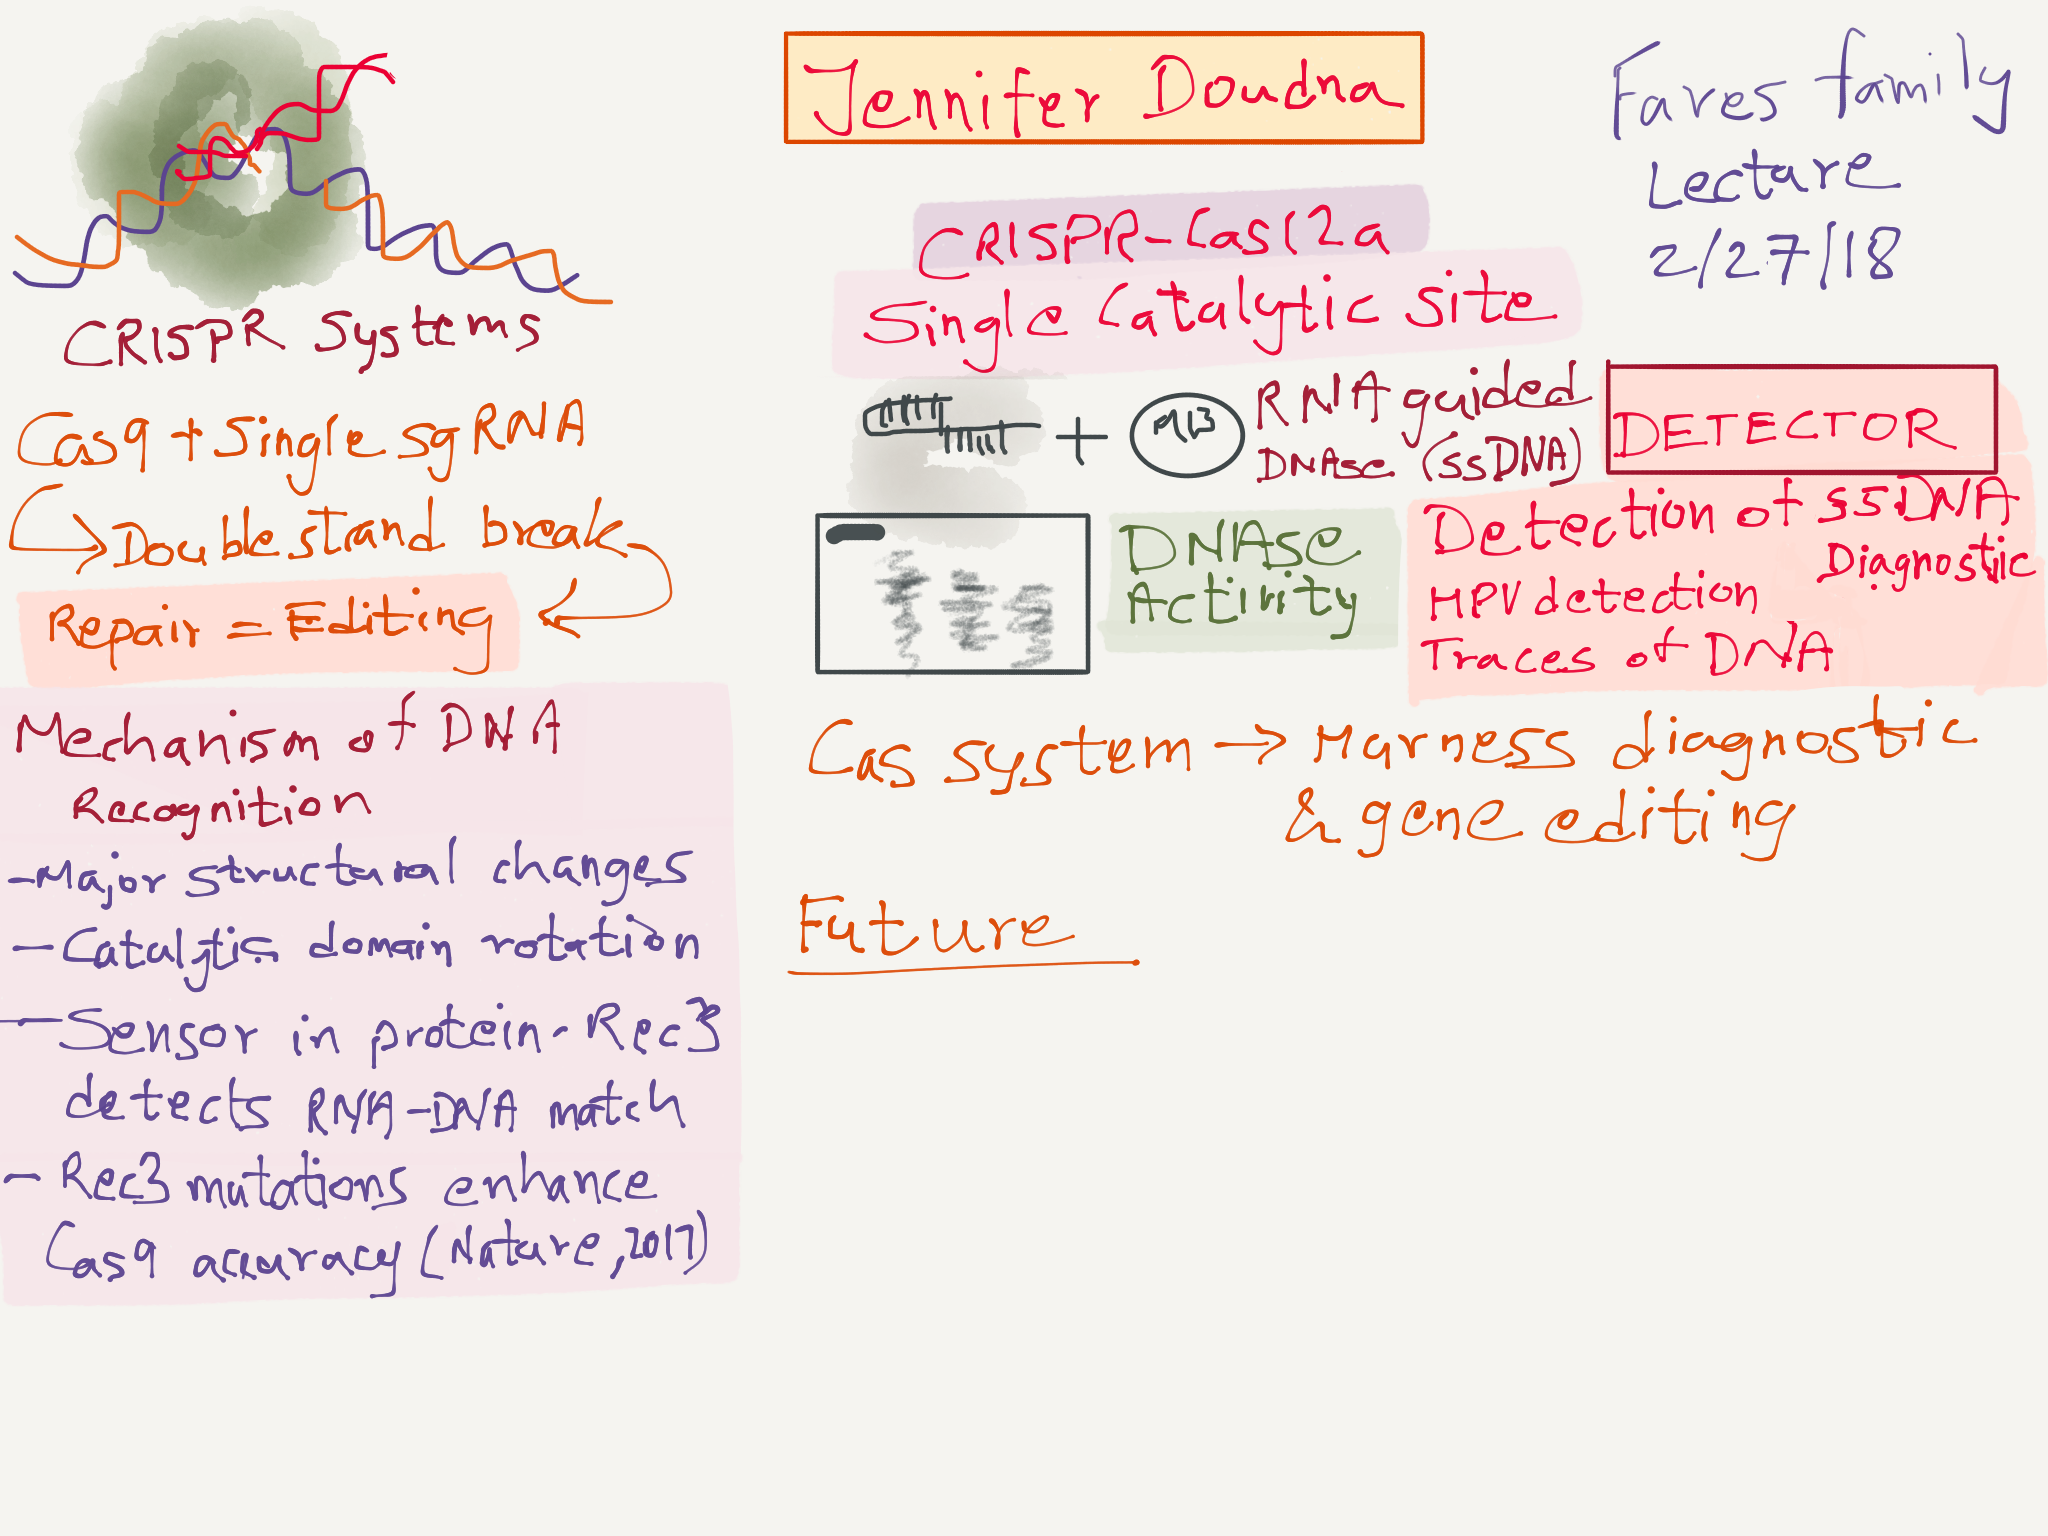 Jennifer Doudna
Faves family
Lecture
2/27/18
CRISPR Systems
Cas9 + Single sgRNA
Double stand break
Repair = Editing
Mechanism of DNA
Recognition
- Major structural changes
- Catalytic domain rotation
- Sensor in protein - Rec3
detects RNA-DNA match
- Rec3 mutations enhance
Cas9 accuracy (Nature, 2017)
CRISPR-Cas12a
Single Catalytic site
+ M13
RNA guided
DNAse (ssDNA)
DETECTOR
DNAse
Activity
Detection of ssDNA
Diagnostic
HPV detection
Traces of DNA
Cas system → Harness diagnostic
& gene editing
Future